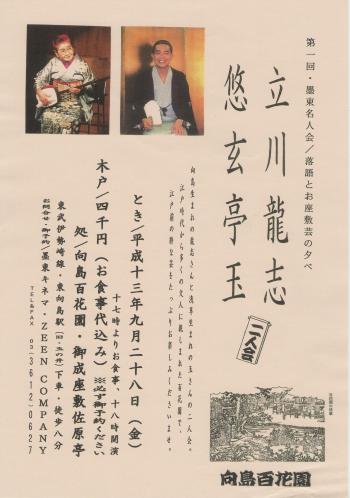 第一回・墨東名人会／落語とお座敷芸の夕べ
立川龍志
悠玄亭玉
二人会
向島生まれの龍志さんと浅草生まれの玉さんの二人会。
江戸時代から多くの文人に親しまれた百花園で、
江戸前の粋な芸をたっぷりお楽しみくださいませ。
とき／平成十三年九月二十八日（金）
十七時よりお食事、十八時開演
木戸／四千円（お食事代込み）※必ず御予約ください
処／向島百花園・御成座敷佐原亭
東武伊勢崎線・東向島駅（旧・玉の井）下車・徒歩八分
お問合せ・御予約／墨東キネマ・ZEEN COMPANY
TEL&FAX 03（3612）0627
向島百花園